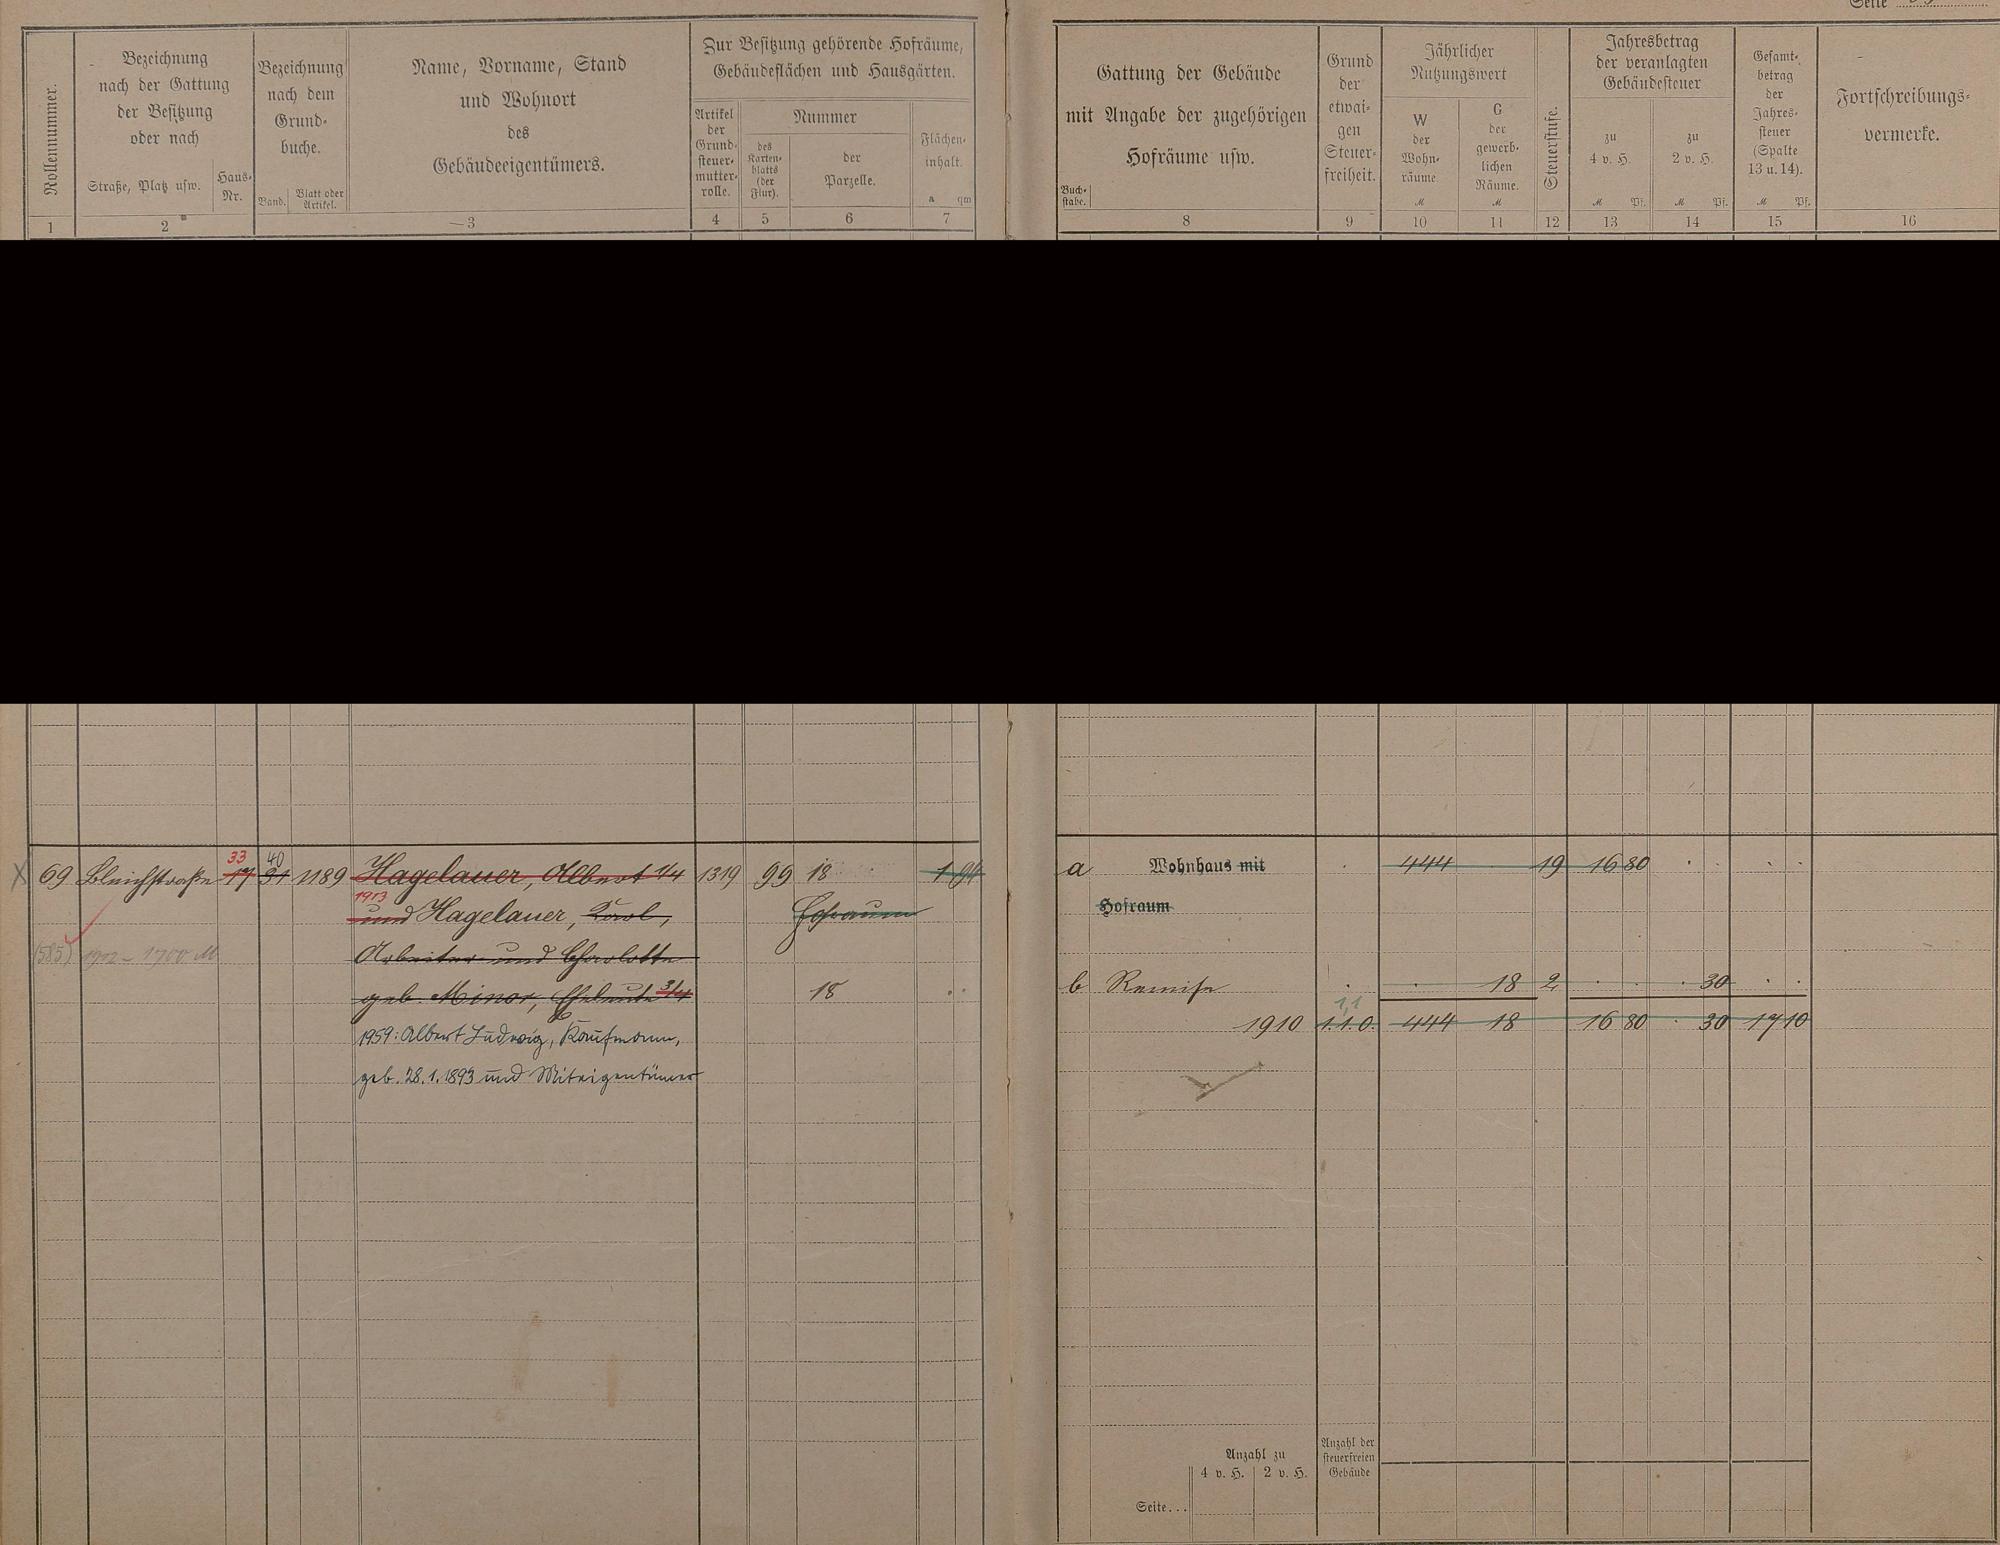 Seite
Rollennummer.
Bezeichnung
nach der Gattung
der Besitzung
oder nach
Straße, Platz usw.
Haus-
Nr.
Bezeichnung
nach dem
Grund-
buche.
Band.
Blatt oder
Artikel.
Name, Vorname, Stand
und Wohnort
des
Gebäudeeigentümers.
Zur Besitzung gehörende Hofräume,
Gebäudeflächen und Hausgärten.
Artikel
der
Grund-
steuer-
mutter-
rolle.
Nummer
des
Karten-
blatts
(der
Flur).
der
Parzelle.
Flächen-
inhalt.
a qm
1 2 3 4 5 6 7
Gattung der Gebäude
mit Angabe der zugehörigen
Hofräume usw.
Buch-
stabe.
Grund
der
etwai-
gen
Steuer-
freiheit.
Jährlicher
Nutzungswert
W
der
Wohn-
räume
M
G
der
gewerb-
lichen
Räume.
M
Steuerstufe.
Jahresbetrag
der veranlagten
Gebäudesteuer
zu
4 v. H.
M Pf.
zu
2 v. H.
M Pf.
Gesamt-
betrag
der
Jahres-
steuer
(Spalte
13 u. 14).
M Pf.
Fortschreibungs-
vermerke.
8 9 10 11 12 13 14 15 16
33 40
X 69 Bleichstraße 17 31 1189 Hagelauer, Albert 1/4 1319 99 18 1 94
1913
und Hagelauer, Karl, Hofraum
(585) 1902 - 1700 M Arbeiter und Charlotte
geb. Minor, Eheleute 3/4 18
1959: Albert Ludwig, Kaufmann,
geb. 28.1.1893 und Miteigentümer
a Wohnhaus mit 444 19 16 80
Hofraum
b Remise 18 2 30
1,1
1910 1.1.0. 444 18 16 80 30 17 10
Anzahl zu
4 v. H. 2 v. H.
Anzahl der
steuerfreien
Gebäude
Seite...